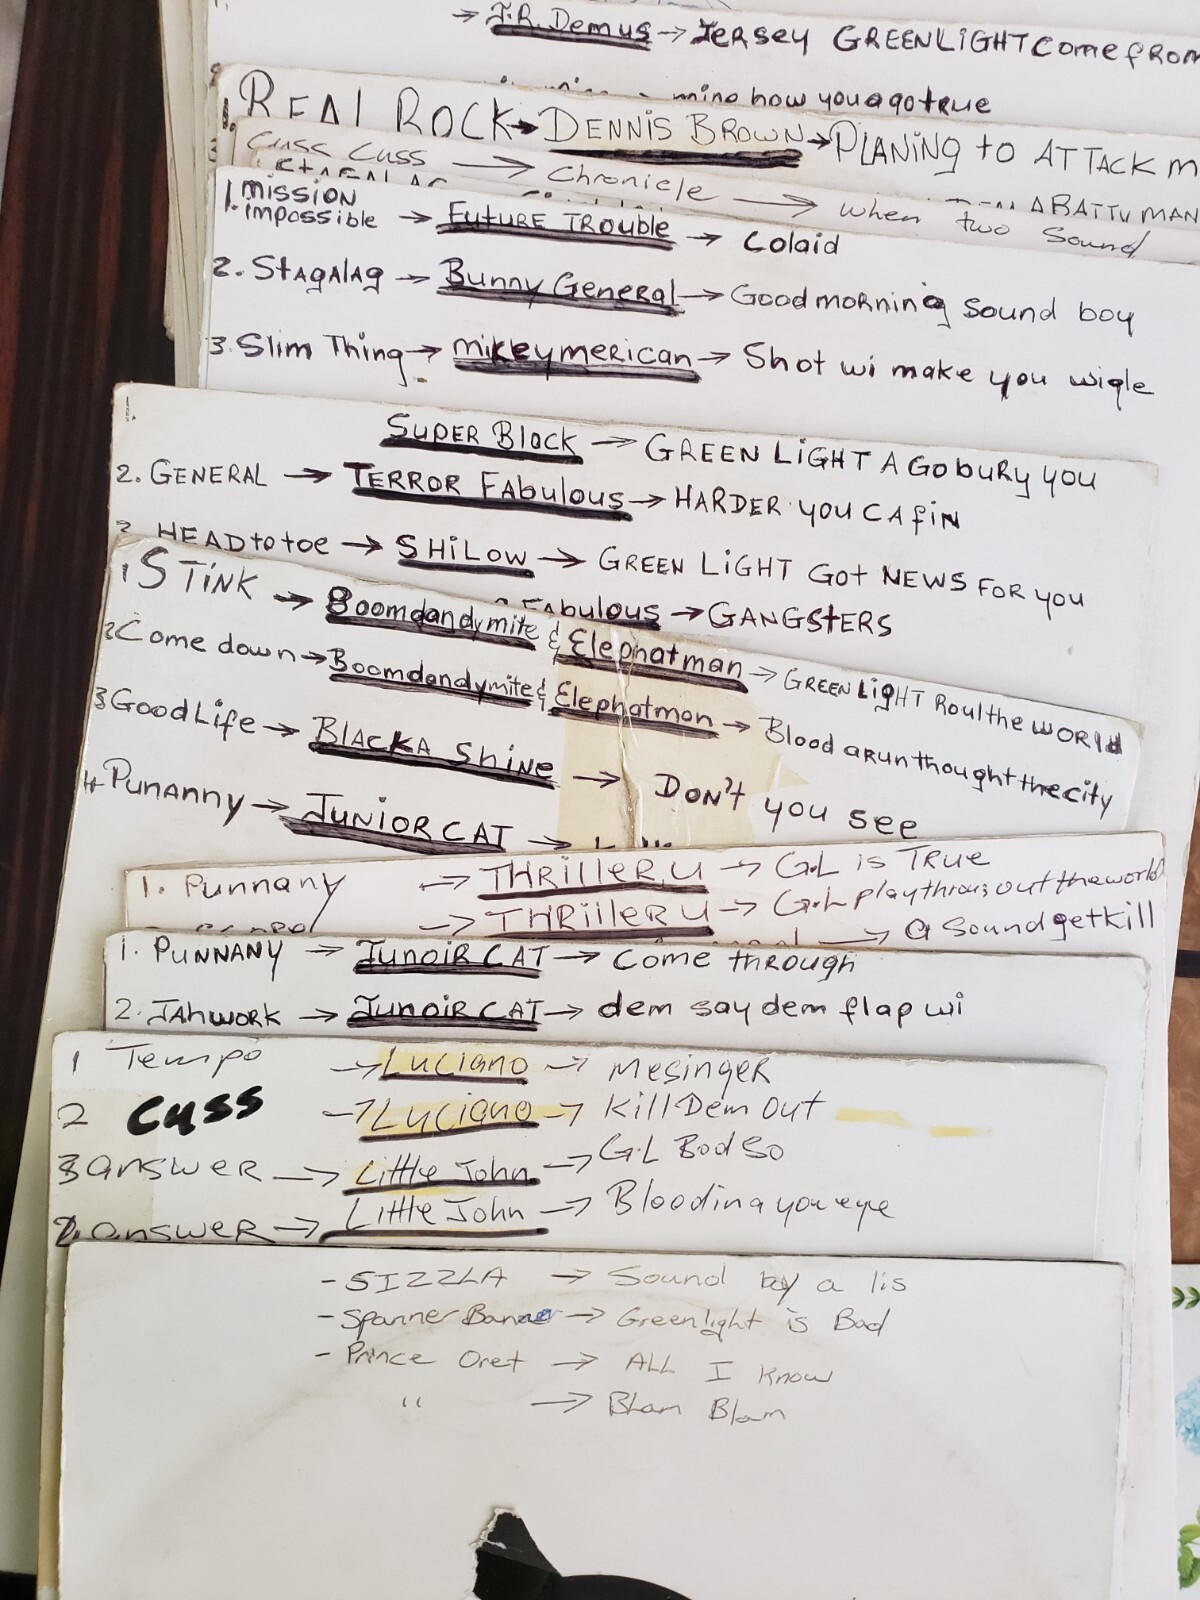 → J.R. Demus → JERSEY GREENLIGHT Come FROM
mino how you a go true
1. REAL ROCK → DENNIS BROWN → PLANING to ATTACK M
Cuss Cuss → Chronicle → when two Sound
A BATTY MAN
1. MISSION impossible → FUTURE TROUBLE → Colaid
2. StAgAlAg → Bunny General → Good morning sound boy
3. Slim Thing → mikeymerican → Shot wi make you wigle
SUPER BlOCK → GREEN LiGHT A GO bury you
2. GENERAL → TERROR FAbulous → HARDER you CA fiN
3 HEAD to toe → SHiLOW → GREEN LiGHT Got NEWS FOR you
FAbulous → GANGStERS
1 STiNK → Boomdandymite & Elephatman → GREEN LigHT Roul the WORld
2 Come down → Boomdandymite & Elephatman → Blood a run thought the city
3 Good Life → BlACKA ShiNE → DON'T you see
4 PunANNy → JUNIOR CAT →
1. Punnany → THRillER U → G.L is TRUE
→ THRillER U → G.L play throus out the world
→ a Sound get kill
1. PUNNANY → Junoir CAT → Come through
2. JAHWORK → Junoir CAT → dem say dem flap wi
1 Tempo → LUCIANO → Mesinger
2 Cuss → LUCIANO → Kill Dem Out
3 answer → Little John → G.L Bad So
2. answer → Little John → Blood ina you eye
- SIZZLA → Sound boy a lis
- Spanner Banner → Greenlight is Bad
- Prince Oret → ALL I Know
" → Blam Blam